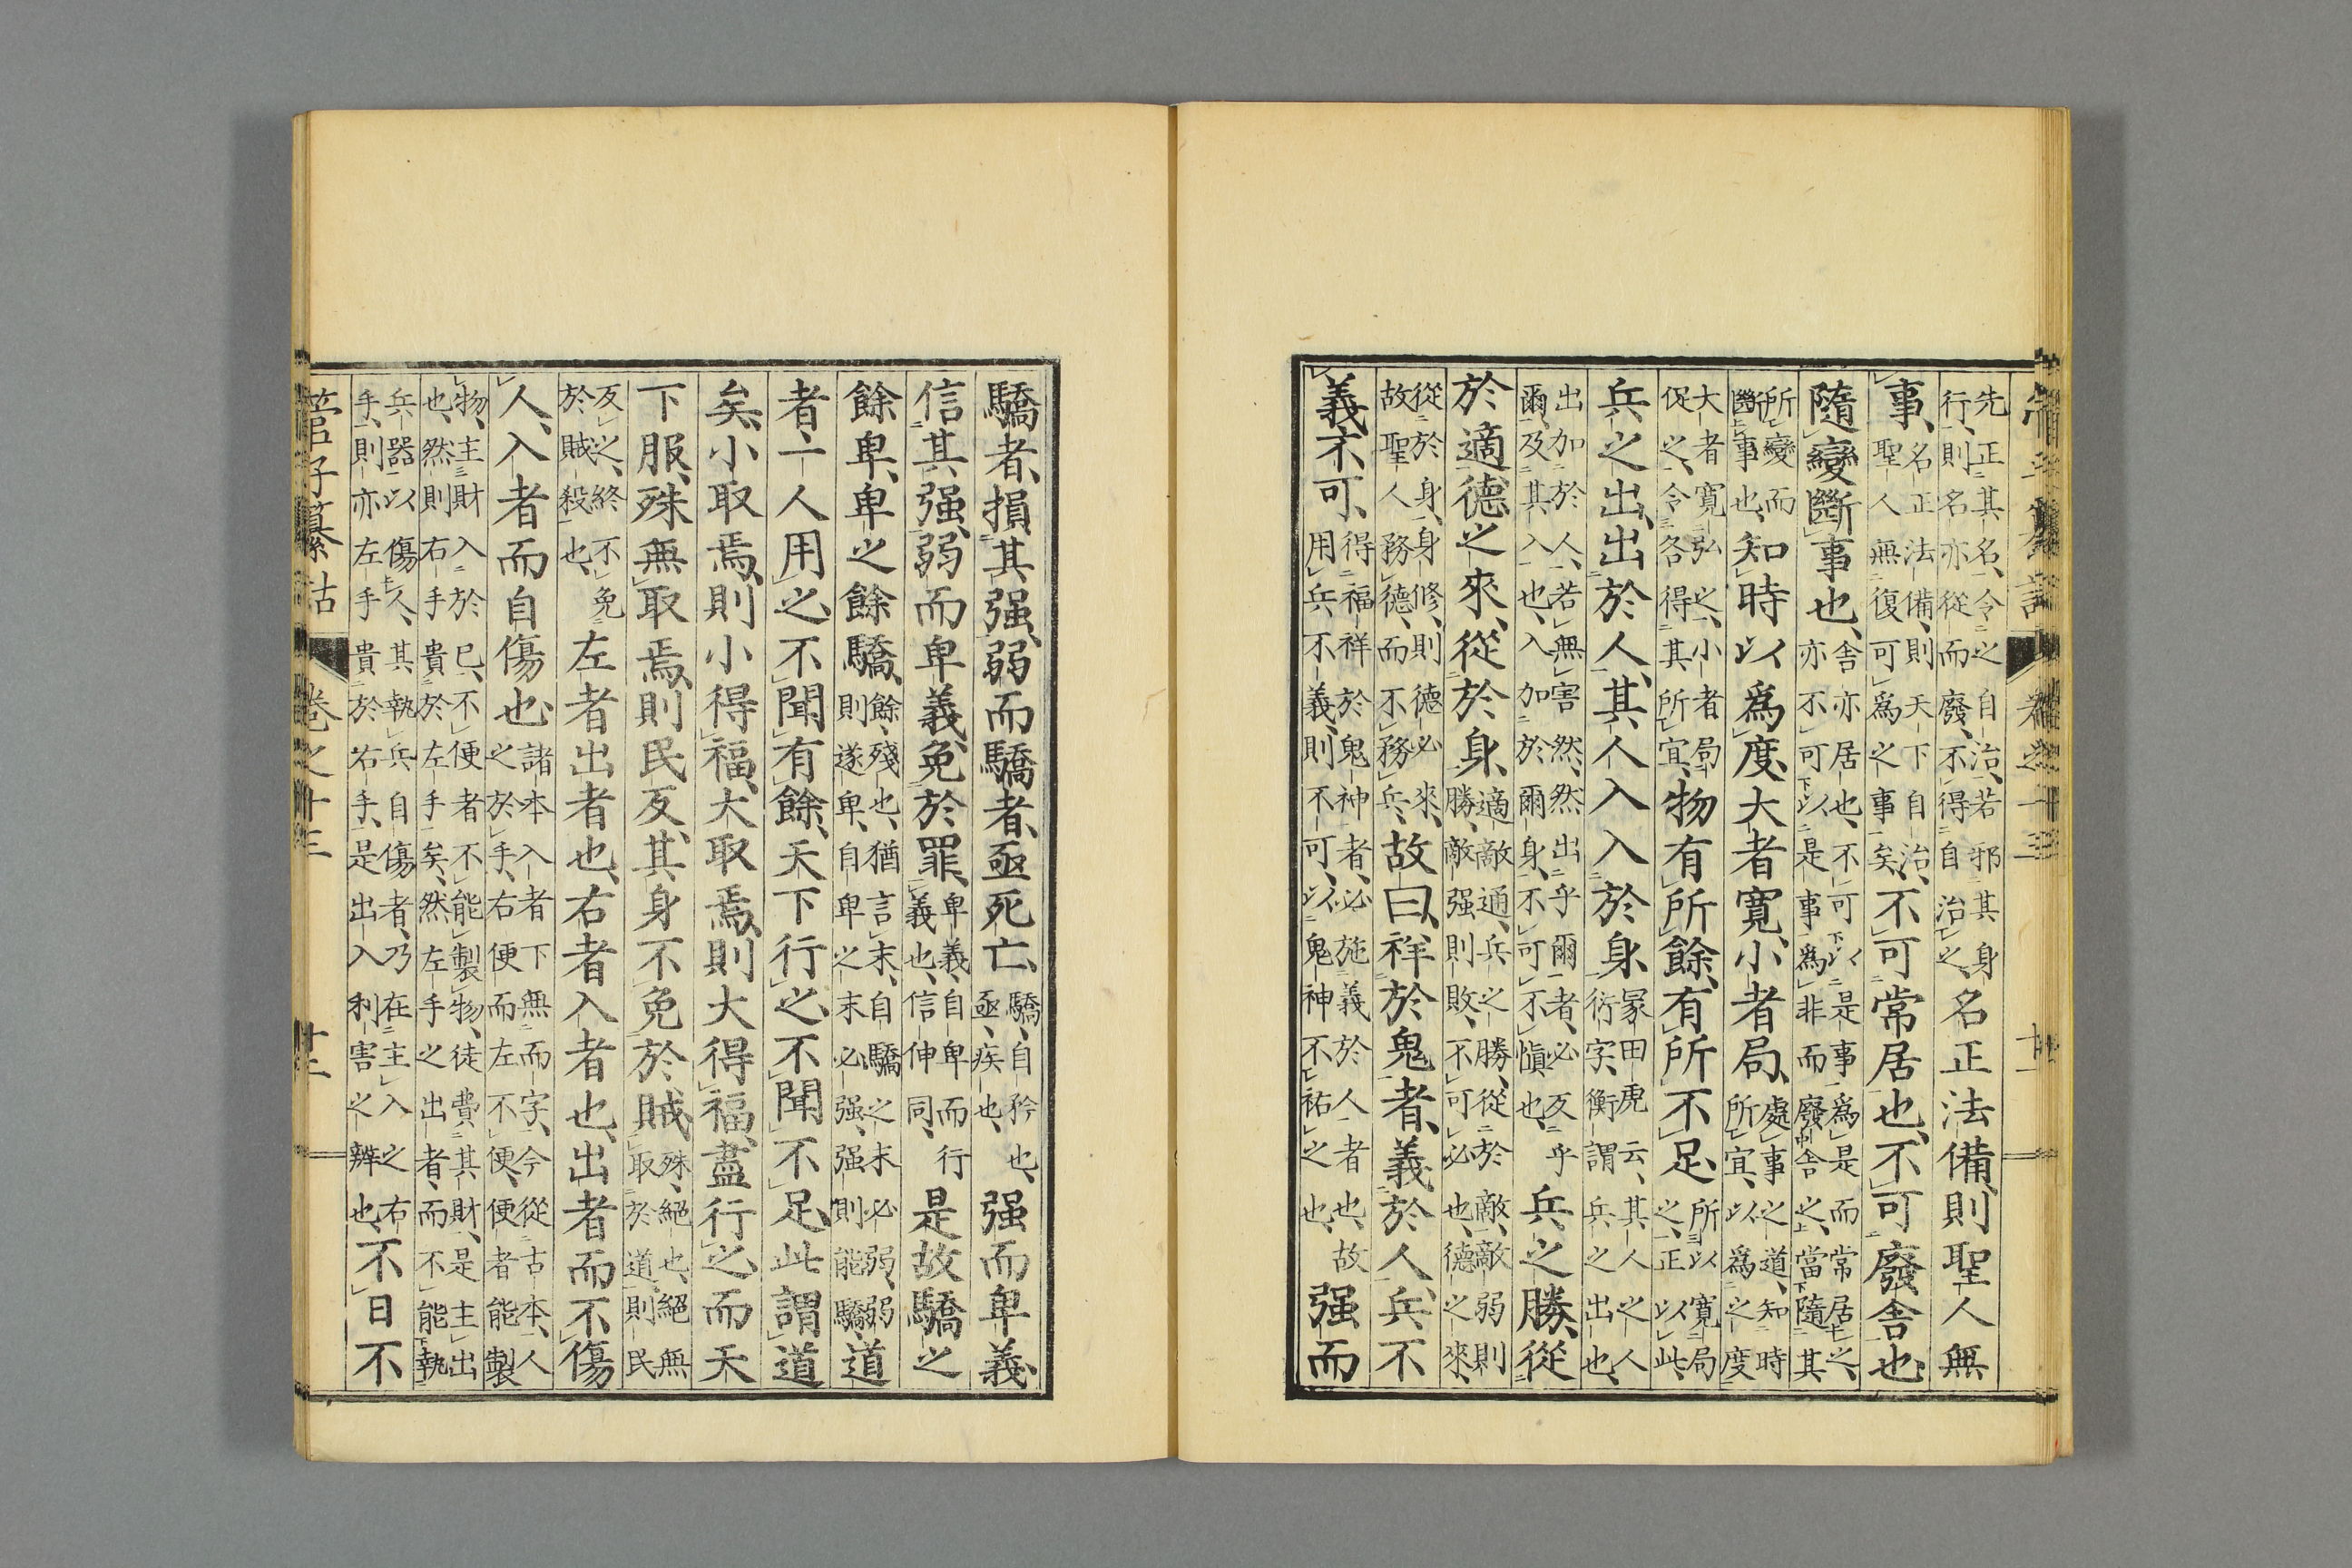 管子纂詁 卷之十三
先正其名、令之自治、若邪其身行、則名亦從而廢、不得自治之、名正法備、則聖人無
事、名正法備、則天下自治、聖人無復可爲之事矣、不可常居也、不可廢舍也
隨變斷事也、舍亦居也、不可以是事爲是而常居之、亦不可以是事爲非而廢舍之、當隨其
所變而斷事也、知時以爲度、大者寬、小者局、處事之道、知時所宜、以爲之度
大者寬弘之、小者局促之、令各得其所宜、物有所餘、有所不足、所以寬局之、正以此、
兵之出、出於人、其人入、入於身、冢田虎云、其人之人衍字、衡謂兵之出也、
出加於人、若無害然、然出乎爾者、必反乎爾、及其入也、入加於爾身、不可不愼也、兵之勝、從
於適、德之來、從於身、適敵通、兵之勝、從於敵、敵弱則勝、敵强則敗、不可必也、德之來、
從於身、身修、則德必來、故聖人務德、而不務兵、故曰、祥於鬼者、義於人、兵不
義不可、得福祥於鬼神者、必施義於人者也、故用兵、不義、則不可、以鬼神不祐之也、强而
驕者、損其强、弱而驕者、亟死亡、驕、自矜也、亟、疾也、强而卑義、
信其强、弱而卑義、免於罪、卑義、自卑而行義也、信伸同、是故驕之
餘卑、卑之餘驕、餘、殘也、猶言末、自驕之末必弱、弱則遂卑、自卑之末必强、强則能驕、道
者、一人用之、不聞有餘、天下行之、不聞不足、此謂道
矣、小取焉、則小得福、大取焉、則大得福、盡行之、而天
下服、殊無取焉、則民反、其身不免於賊、殊、絕也、絕無取於道、則民
反之、終不免於賊殺也、左者出者也、右者入者也、出者而不傷
人、入者而自傷也、諸本入者下無而字、今從古本、人之於手、右便而左不便、便者能製
物、主財入於已、不便者不能製物、徒費其財、是主出也、然則右手貴於左手矣、然左手之出者、而不能執
兵器以傷人、其執兵自傷者、乃在主入之右手、則亦左手貴於右手、是出入利害之辨也、不日不
管子纂詁 卷之十三